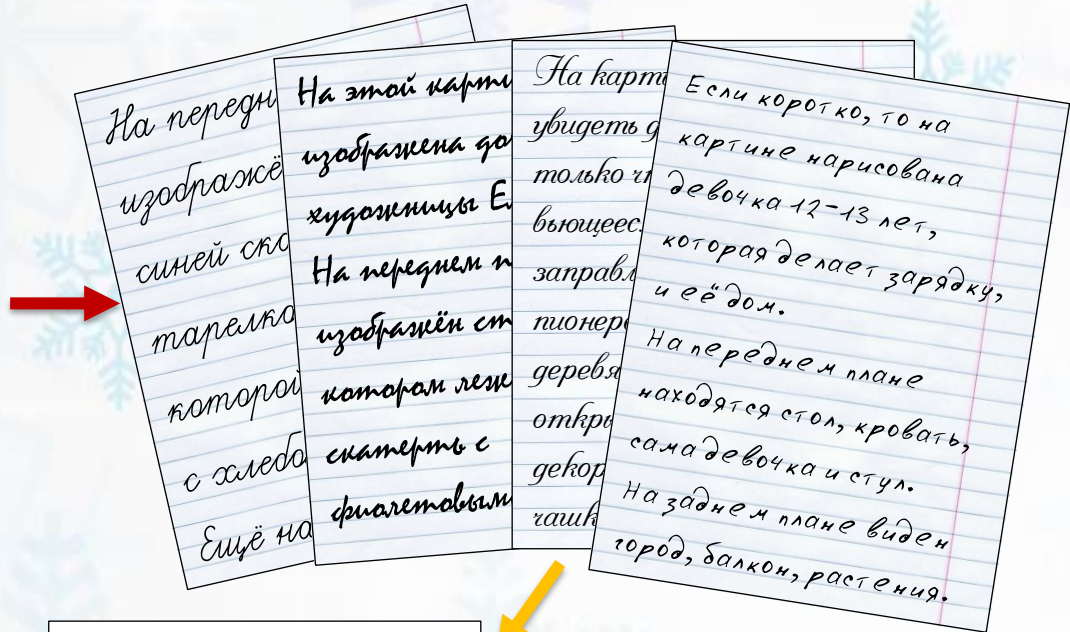 На передн
изображё
синей ска
тарелко
которой
с хлебо
Ещё на
На этой карти
изображена до
художницы Е
На переднем п
изображён ст
котором леж
скатерть с
фиолетовым
На карти
увидеть д
только чт
вьющеес
заправл
пионер
деревя
откры
декор
чашк
Если коротко, то на
картине нарисована
девочка 12-13 лет,
которая делает зарядку,
и её дом.
На переднем плане
находятся стол, кровать,
сама девочка и стул.
На заднем плане виден
город, балкон, растения.